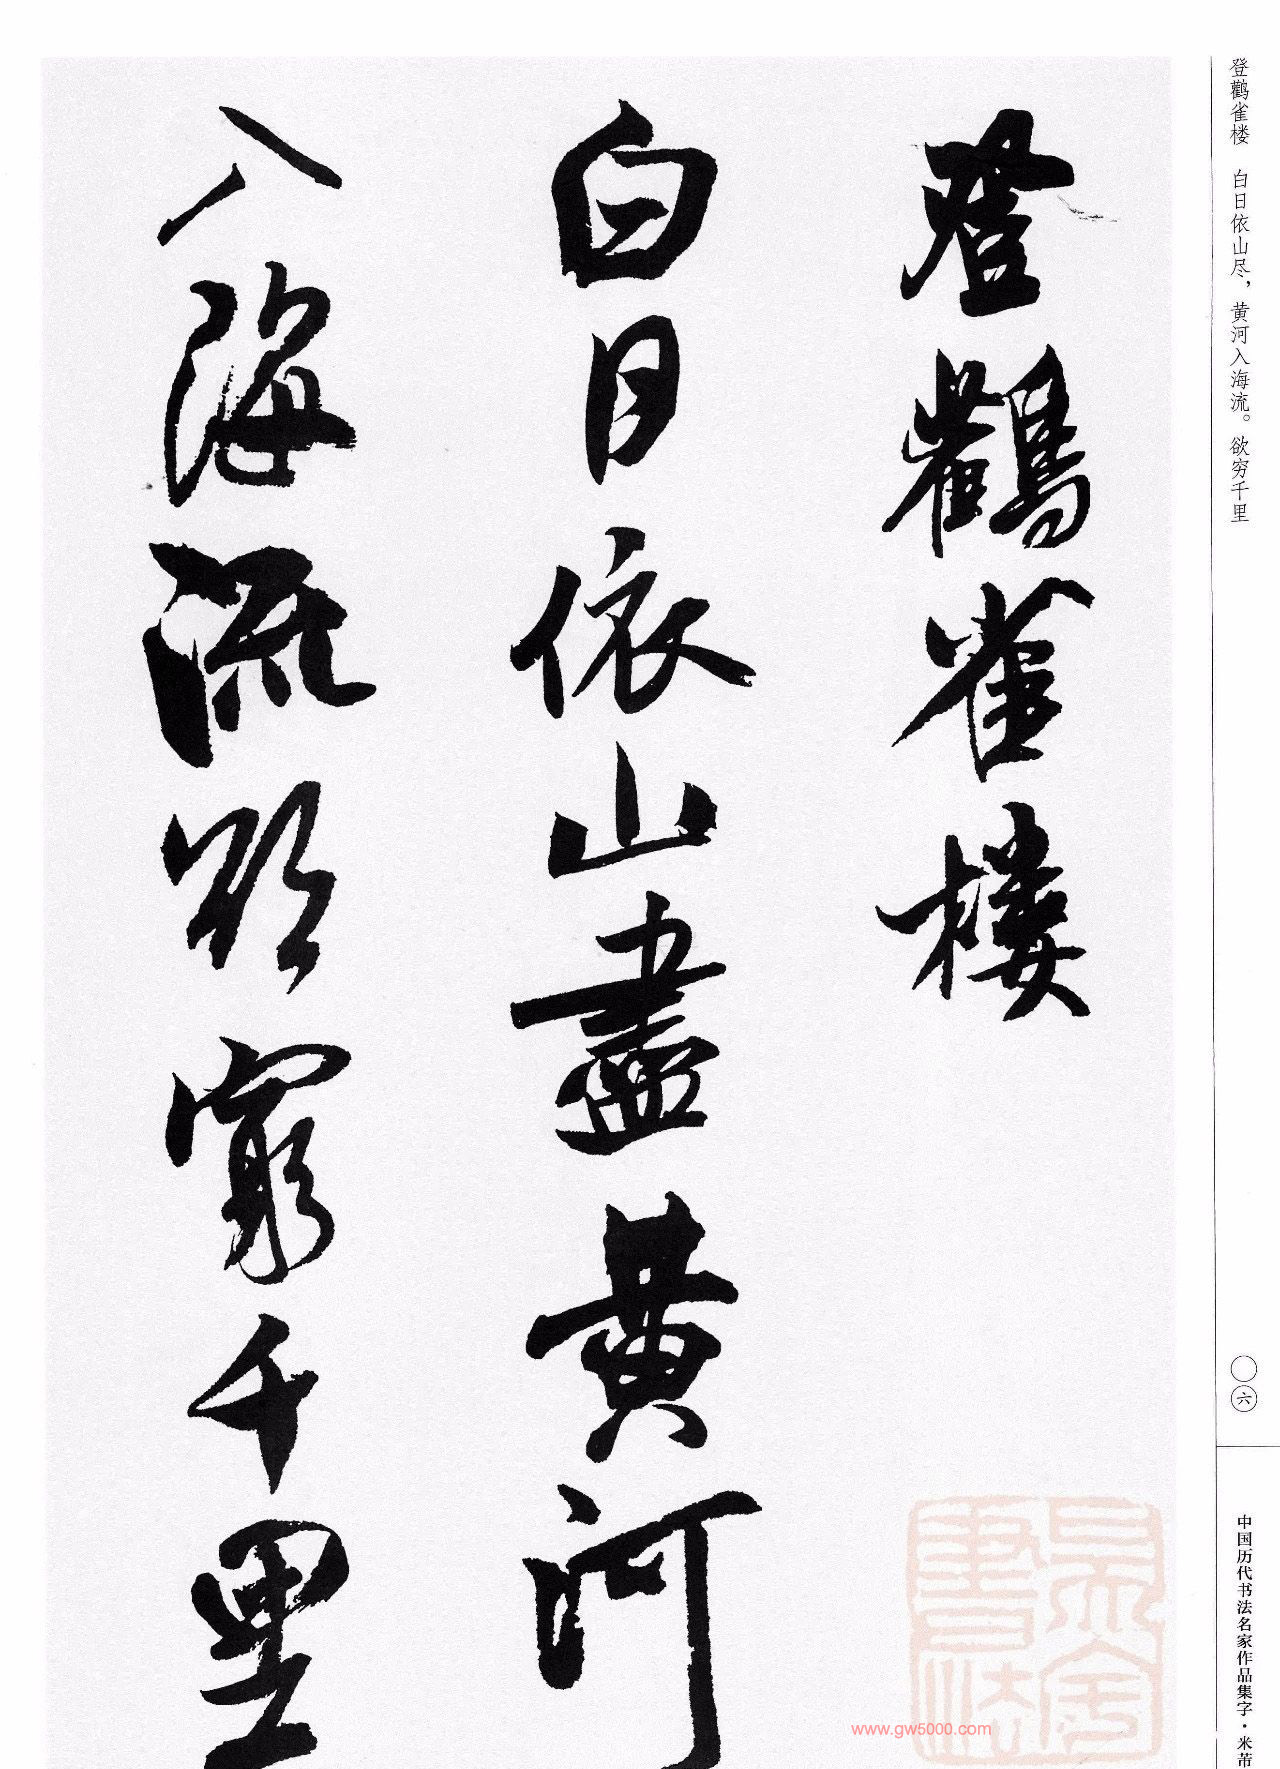 登鸛雀樓
白日依山盡黄河
入海流欲窮千里
登鹳雀楼 白日依山尽，黄河入海流。欲穷千里
〇六
中国历代书法名家作品集字·米芾
www.gw5000.com